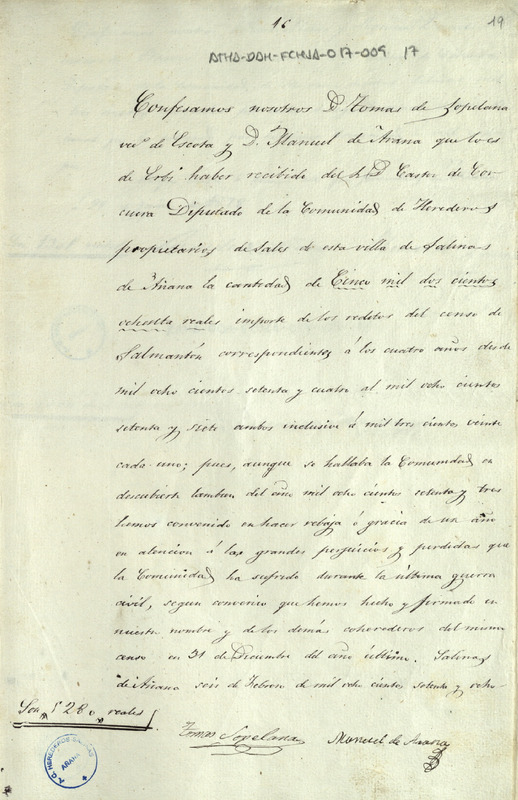 16
19
ATHA-DAH-FCHSA-017-009 17
Confesamos nosotros D. Tomas de Sopelana
vecº de Escota y D. Manuel de Arana que lo es
de Erbi haber recibido del Sr D Castor de Cor
cuera Diputado de la Comunidad de Herederos
propietarios de sales de esta villa de Salinas
de Añana la cantidad de Cinco mil dos cientos
ochenta reales importe de los reditos del censo de
Salmantón correspondientes á los cuatro años desde
mil ocho cientos setenta y cuatro al mil ocho cientos
setenta y siete ambos inclusive á mil tres cientos veinte
cada uno; pues, aunque se hallaba la Comunidad en
descubierto tambien del año mil ocho cientos setenta y tres
hemos convenido en hacer rebaja ó gracia de un año
en atencion á las grandes perjuicios y perdidas que
la Comunidad ha sufrido durante la última guerra
civil, segun convenio que hemos hecho y firmado en
nuestro nombre y de los demás coherederos del mismo
censo en 31 de Diciembre del año último. Salinas
de Añana seis de Febrero de mil ocho cientos setenta y ocho
Son 5280 reales
Tomas Sopelana
Manuel de Arana
HEREDEROS
AÑANA